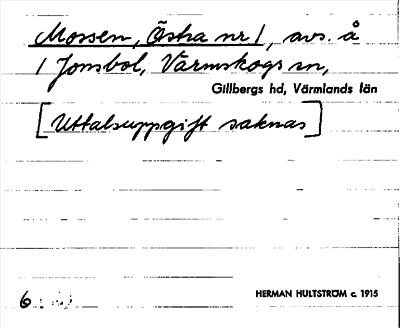 Mossen, Östra nr 1, avs. å
1 Jonsbol, Värmskogs sn,
Gillbergs hd, Värmlands län
[Uttalsuppgift saknas]
6
HERMAN HULTSTRÖM c. 1915